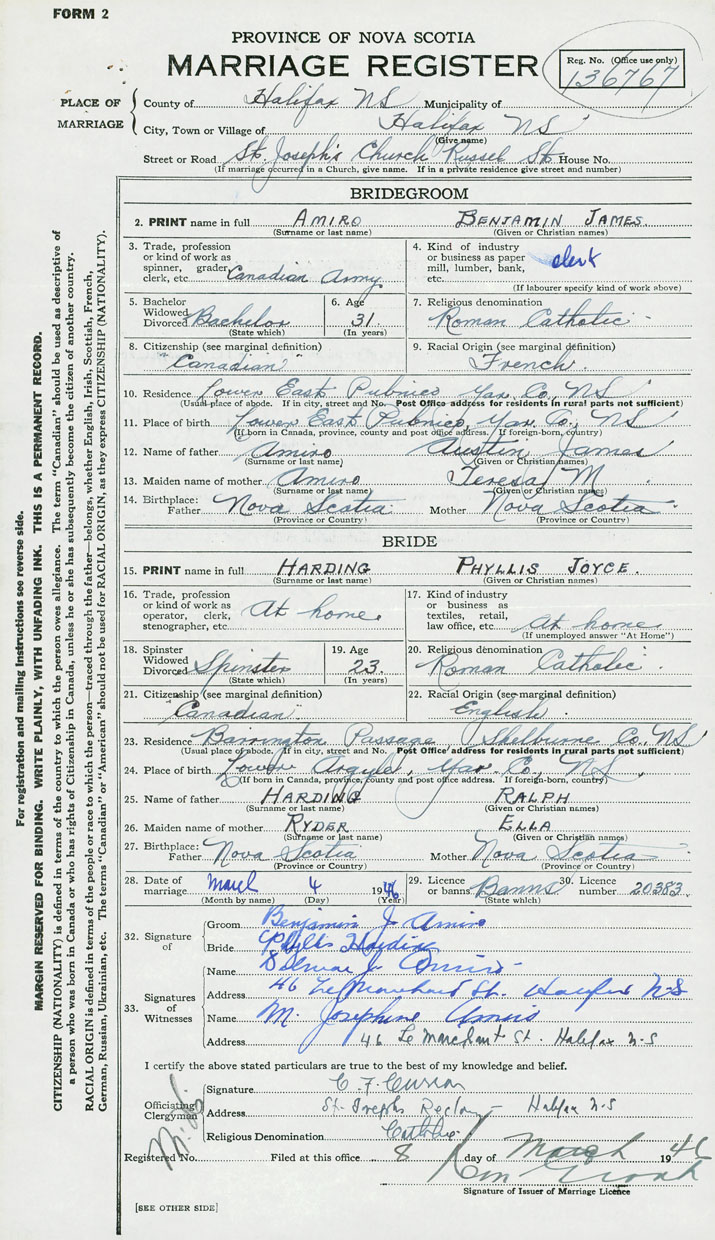 FORM 2
PROVINCE OF NOVA SCOTIA
MARRIAGE REGISTER
Reg. No. (Office use only)
136767
PLACE OF MARRIAGE
County of Halifax NS Municipality of
City, Town or Village of Halifax NS
(Give name)
Street or Road St. Joseph's Church Russel St. House No.
(If marriage occurred in a Church, give name. If in a private residence give street and number)
BRIDEGROOM
2. PRINT name in full AMIRO BENJAMIN JAMES.
(Surname or last name) (Given or Christian names)
3. Trade, profession or kind of work as spinner, grader, clerk, etc. Canadian Army
4. Kind of industry or business as paper mill, lumber, bank, etc. clerk
(If labourer specify kind of work above)
5. Bachelor Widowed Divorced Bachelor
(State which)
6. Age 31.
(In years)
7. Religious denomination
Roman Catholic
8. Citizenship (see marginal definition)
"Canadian"
9. Racial Origin (see marginal definition)
French.
10. Residence Lower East Pubnico Yar. Co., NS
(Usual place of abode. If in city, street and No. Post Office address for residents in rural parts not sufficient)
11. Place of birth Lower East Pubnico, Yar. Co., NS
(If born in Canada, province, county and post office address. If foreign-born, country)
12. Name of father Amiro Austin James
(Surname or last name) (Given or Christian names)
13. Maiden name of mother Amiro Teresa M.
(Surname or last name) (Given or Christian names)
14. Birthplace: Father Nova Scotia Mother Nova Scotia
(Province or Country) (Province or Country)
BRIDE
15. PRINT name in full HARDING PHYLLIS JOYCE.
(Surname or last name) (Given or Christian names)
16. Trade, profession or kind of work as operator, clerk, stenographer, etc. At home.
17. Kind of industry or business as textiles, retail, law office, etc. At home
(If unemployed answer "At Home")
18. Spinster Widowed Divorced Spinster
(State which)
19. Age 23.
(In years)
20. Religious denomination
Roman Catholic.
21. Citizenship (see marginal definition)
"Canadian"
22. Racial Origin (see marginal definition)
English.
23. Residence Barrington Passage Shelburne Co., NS
(Usual place of abode. If in city, street and No. Post Office address for residents in rural parts not sufficient)
24. Place of birth Lower Argyle, Yar. Co., NS
(If born in Canada, province, county and post office address. If foreign-born, country)
25. Name of father HARDING RALPH
(Surname or last name) (Given or Christian names)
26. Maiden name of mother RYDER ELLA
(Surname or last name) (Given or Christian names)
27. Birthplace: Father Nova Scotia Mother Nova Scotia
(Province or Country) (Province or Country)
28. Date of marriage March 4 1946
(Month by name) (Day) (Year)
29. Licence or banns Banns
(State which)
30. Licence number 20383
32. Signature of
Groom Benjamin J Amiro
Bride Phyllis Harding
33. Signatures of Witnesses
Name J. Amiro
Address 46 Le Marchant St. Halifax N-S
Name M. Josephine Amiro
Address 46 Le Marchant St. Halifax N-S
I certify the above stated particulars are true to the best of my knowledge and belief.
Officiating Clergyman
Signature C. F. Curran
Address St. Josephs Halifax N-S
Religious Denomination Catholic
Registered No. Filed at this office 8 day of March 1946
Signature of Issuer of Marriage Licence
[SEE OTHER SIDE]
For registration and mailing instructions see reverse side.
MARGIN RESERVED FOR BINDING. WRITE PLAINLY, WITH UNFADING INK. THIS IS A PERMANENT RECORD.
CITIZENSHIP (NATIONALITY) is defined in terms of the country to which the person owes allegiance. The term "Canadian" should be used as descriptive of
a person who was born in Canada or who has rights of Citizenship in Canada, unless he or she has subsequently become the citizen of another country.
RACIAL ORIGIN is defined in terms of the people or race to which the person—traced through the father—belongs, whether English, Irish, Scottish, French,
German, Russian, Ukrainian, etc. The terms "Canadian" or "American" should not be used for RACIAL ORIGIN, as they express CITIZENSHIP (NATIONALITY).